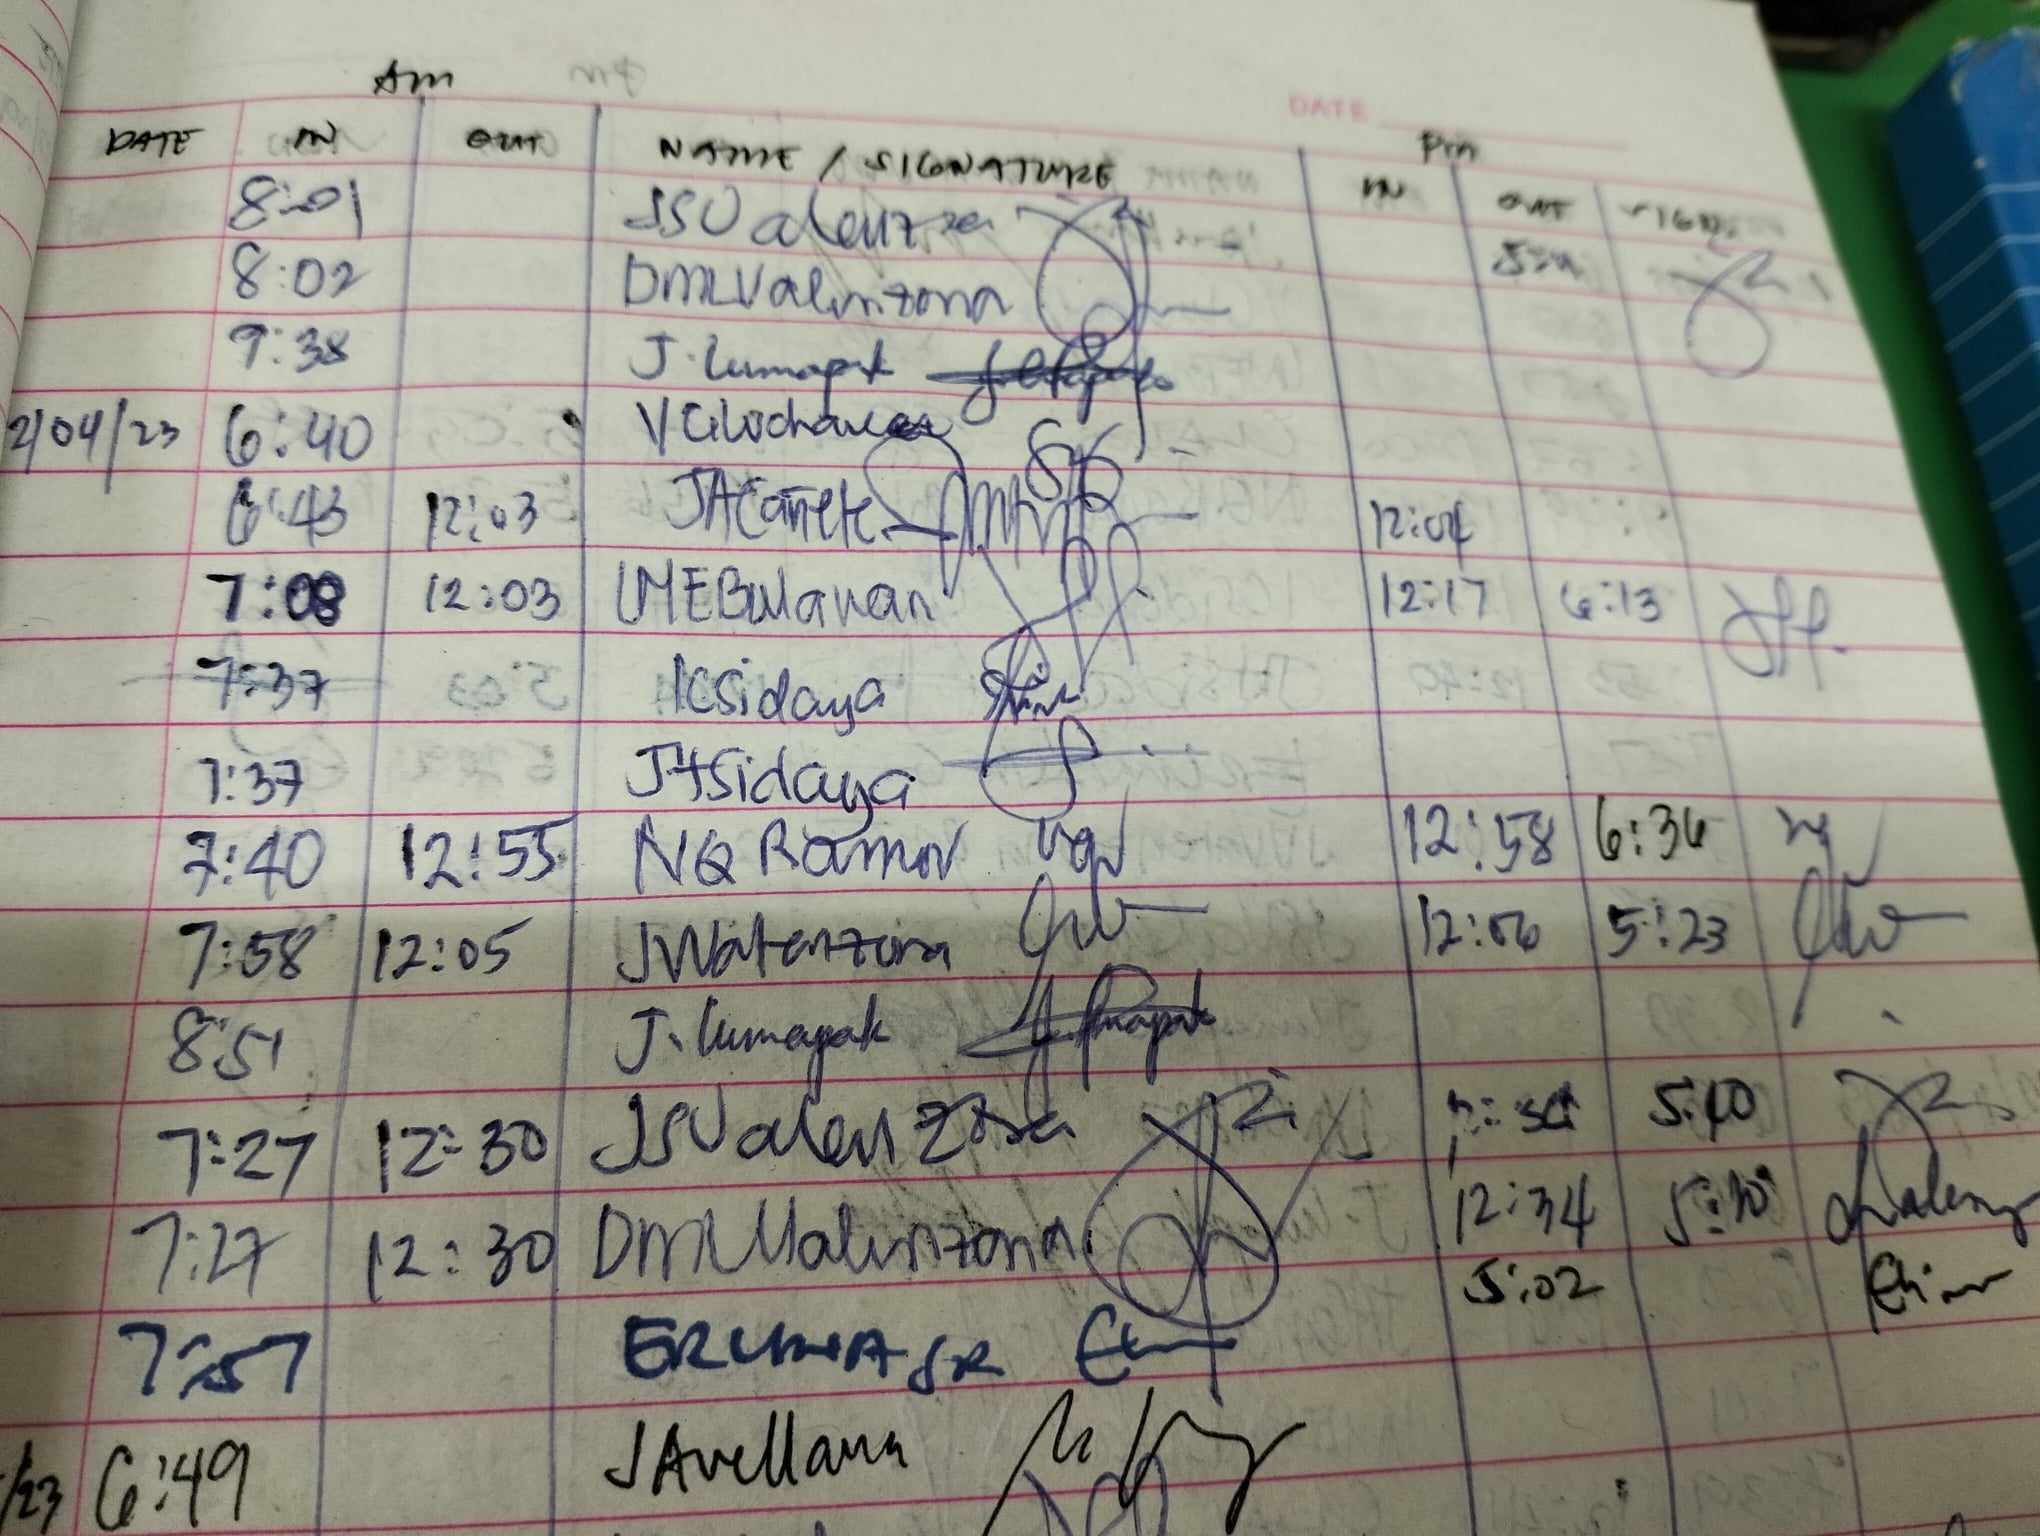 Am
DATE
Pm
DATE IN OUT NAME / SIGNATURE IN OUT SIGN.
8:01 JSValenzona
8:02 DMLValenzona
7:38 J. Lumapak
2/04/23 6:40
6:43 12:03 JACañete 12:04
7:08 12:03 LMEBulawan 12:17 6:13
7:37 ICSidaya
7:37 JHSidaya
7:40 12:55 NQ Ramos 12:58 6:36
7:58 12:05 12:06 5:23
8:51 J. Lumapak
7:27 12:30 JSValenzona 5:40
7:27 12:30 DMLValenzona 12:34 5:30
7:57 JR 5:02
/23 6:49 JAvellana